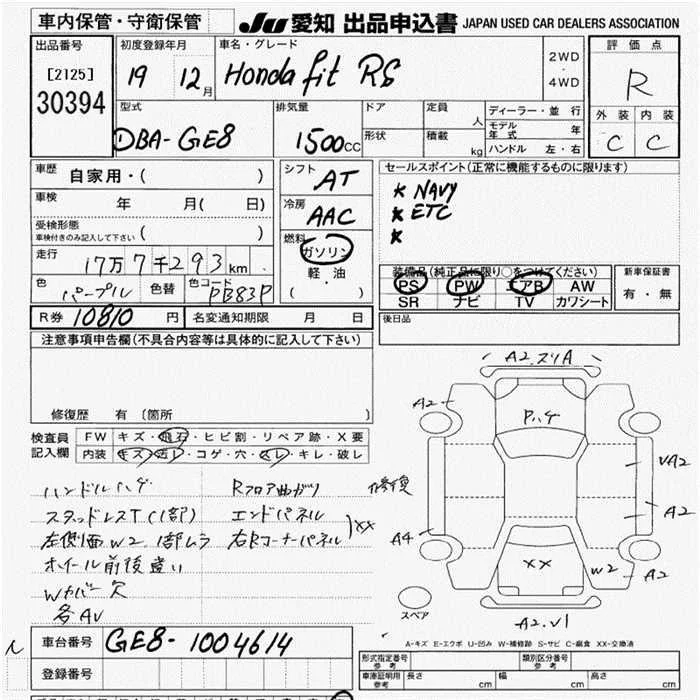 車内保管・守衛保管
JU 愛知 出品申込書 JAPAN USED CAR DEALERS ASSOCIATION
出品番号 [2125] 30394
初度登録年月 19 12月
車名・グレード Honda fit RS
2WD ・ 4WD
評価点 R
外装 内装
C C
型式 DBA-GE8
排気量 1500cc
ドア 定員 人
形状 積載 kg
ディーラー・並行
モデル年式 年
ハンドル 左・右
車歴 自家用・( )
車検 年 月( 日)
受検形態
車検付きのみ記入して下さい ( )
走行 17万7千293km
色 パープル 色替 色コード PB83P
シフト AT
冷房 AAC
燃料 ガソリン
軽・油
( )
セールスポイント(正常に機能するものに限ります)
* NAVY
* ETC
*
装備品(純正品に限り○をつけてください)
PS PW エアB AW
SR ナビ TV カワシート
新車保証書
有・無
R券 10810 円 名変通知期限 月 日
後日品
注意事項申告欄(不具合内容等は具体的に記入して下さい)
修復歴 有 〔箇所
検査員記入欄
FW キズ・飛石・ヒビ割・リペア跡・X要
内装 キズ・汚レ・コゲ・穴・スレ・キレ・破レ
ハンドルハゲ Rフロア曲ガリ
スタッドレスT(1部) エンドパネル
左側面W2 1部ムラ 右Rコーナーパネル )××
ホイール前後違い
Wカバー欠
各AV
A2.スリA
A2
P.ハ.4
VA2
A2
A4
××
W2
A2
A2.V1
スペア
A-キズ E-エクボ U-凹み W-補修跡 S-サビ C-腐食 XX-交換済
車台番号 GE8-1004614
登録番号
形式指定番号 参考 類別区分番号 参考
車庫証明用 参考 長さ cm 幅 cm 高さ cm